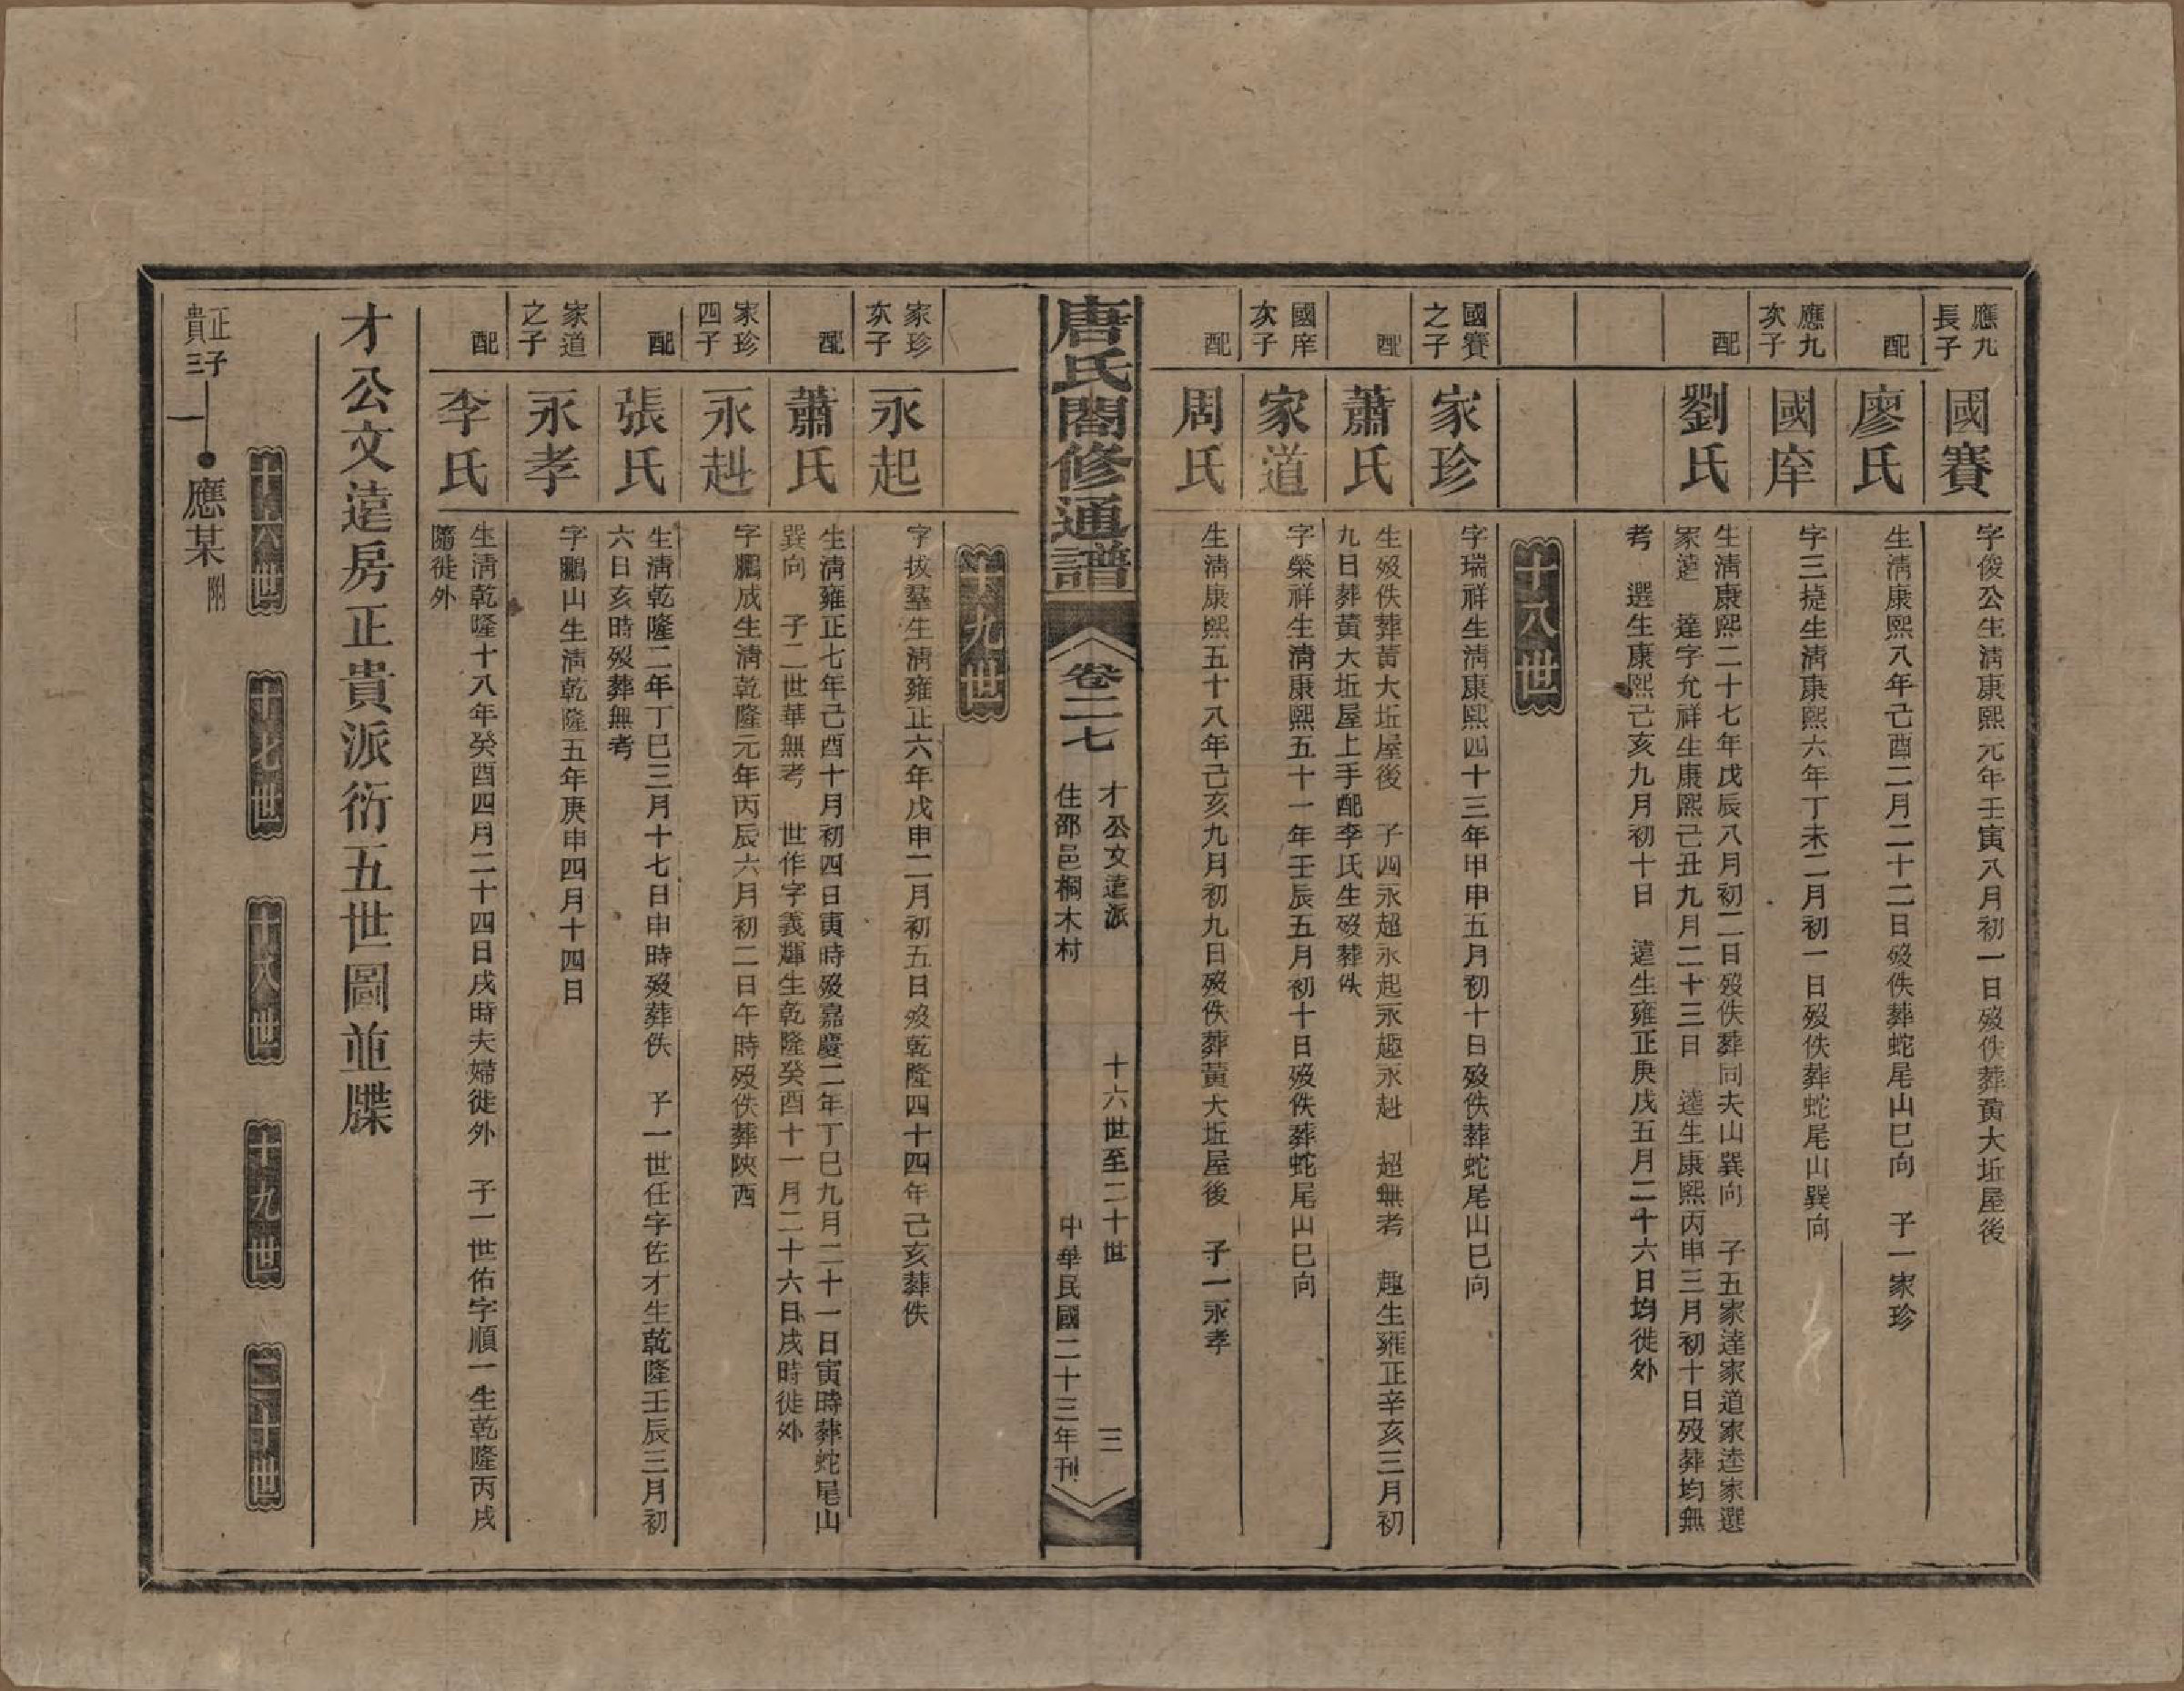 應九長子
國賽
字俊公生淸康熙元年壬寅八月初一日歿佚葬黃大坵屋後
配
廖氏
生淸康熙八年己酉二月二十二日歿佚葬蛇尾山巳向　子一家珍
應九次子
國庠
字三捷生淸康熙六年丁未二月初一日歿佚葬蛇尾山巽向
配
劉氏
生淸康熙二十七年戊辰八月初二日歿佚葬同夫山巽向　子五家達家道家逵家選
家遠　達字允祥生康熙己丑九月二十三日　逵生康熙丙申三月初十日歿葬均無
考　選生康熙己亥九月初十日　遠生雍正庚戌五月二十六日均徙外
十八世
國賽之子
家珍
字瑞祥生淸康熙四十三年甲申五月初十日歿佚葬蛇尾山巳向
配
蕭氏
生歿佚葬黃大坵屋後　子四永超永起永趣永赳　超無考　趣生雍正辛亥三月初
九日葬黃大坵屋上手配李氏生歿葬佚
國庠次子
家道
字榮祥生淸康熙五十一年壬辰五月初十日歿佚葬蛇尾山巳向
配
周氏
生淸康熙五十八年己亥九月初九日歿佚葬黃大坵屋後　子一永孝
唐氏閤修通譜
卷二七
才公文遠派
住邵邑桐木村
十六世至二十世
三
中華民國二十三年刊
十九世
家珍次子
永起
字拔羣生淸雍正六年戊申二月初五日歿乾隆四十四年己亥葬佚
配
蕭氏
生淸雍正七年己酉十月初四日寅時歿嘉慶二年丁巳九月二十一日寅時葬蛇尾山
巽向　子二世華無考　世作字義輝生乾隆癸酉十一月二十六日戌時徙外
家珍四子
永赳
字鵬成生淸乾隆元年丙辰六月初二日午時歿佚葬陝西
配
張氏
生淸乾隆二年丁巳三月十七日申時歿葬佚　子一世任字佐才生乾隆壬辰三月初
六日亥時歿葬無考
家道之子
永孝
字鵬山生淸乾隆五年庚申四月十四日
配
李氏
生淸乾隆十八年癸酉四月二十四日戌時夫婦徙外　子一世佑字順一生乾隆丙戌
隨徙外
才公文遠房正貴派衍五世圖並牒
十六世
十七世
十八世
十九世
二十世
正貴三子
一
應某附